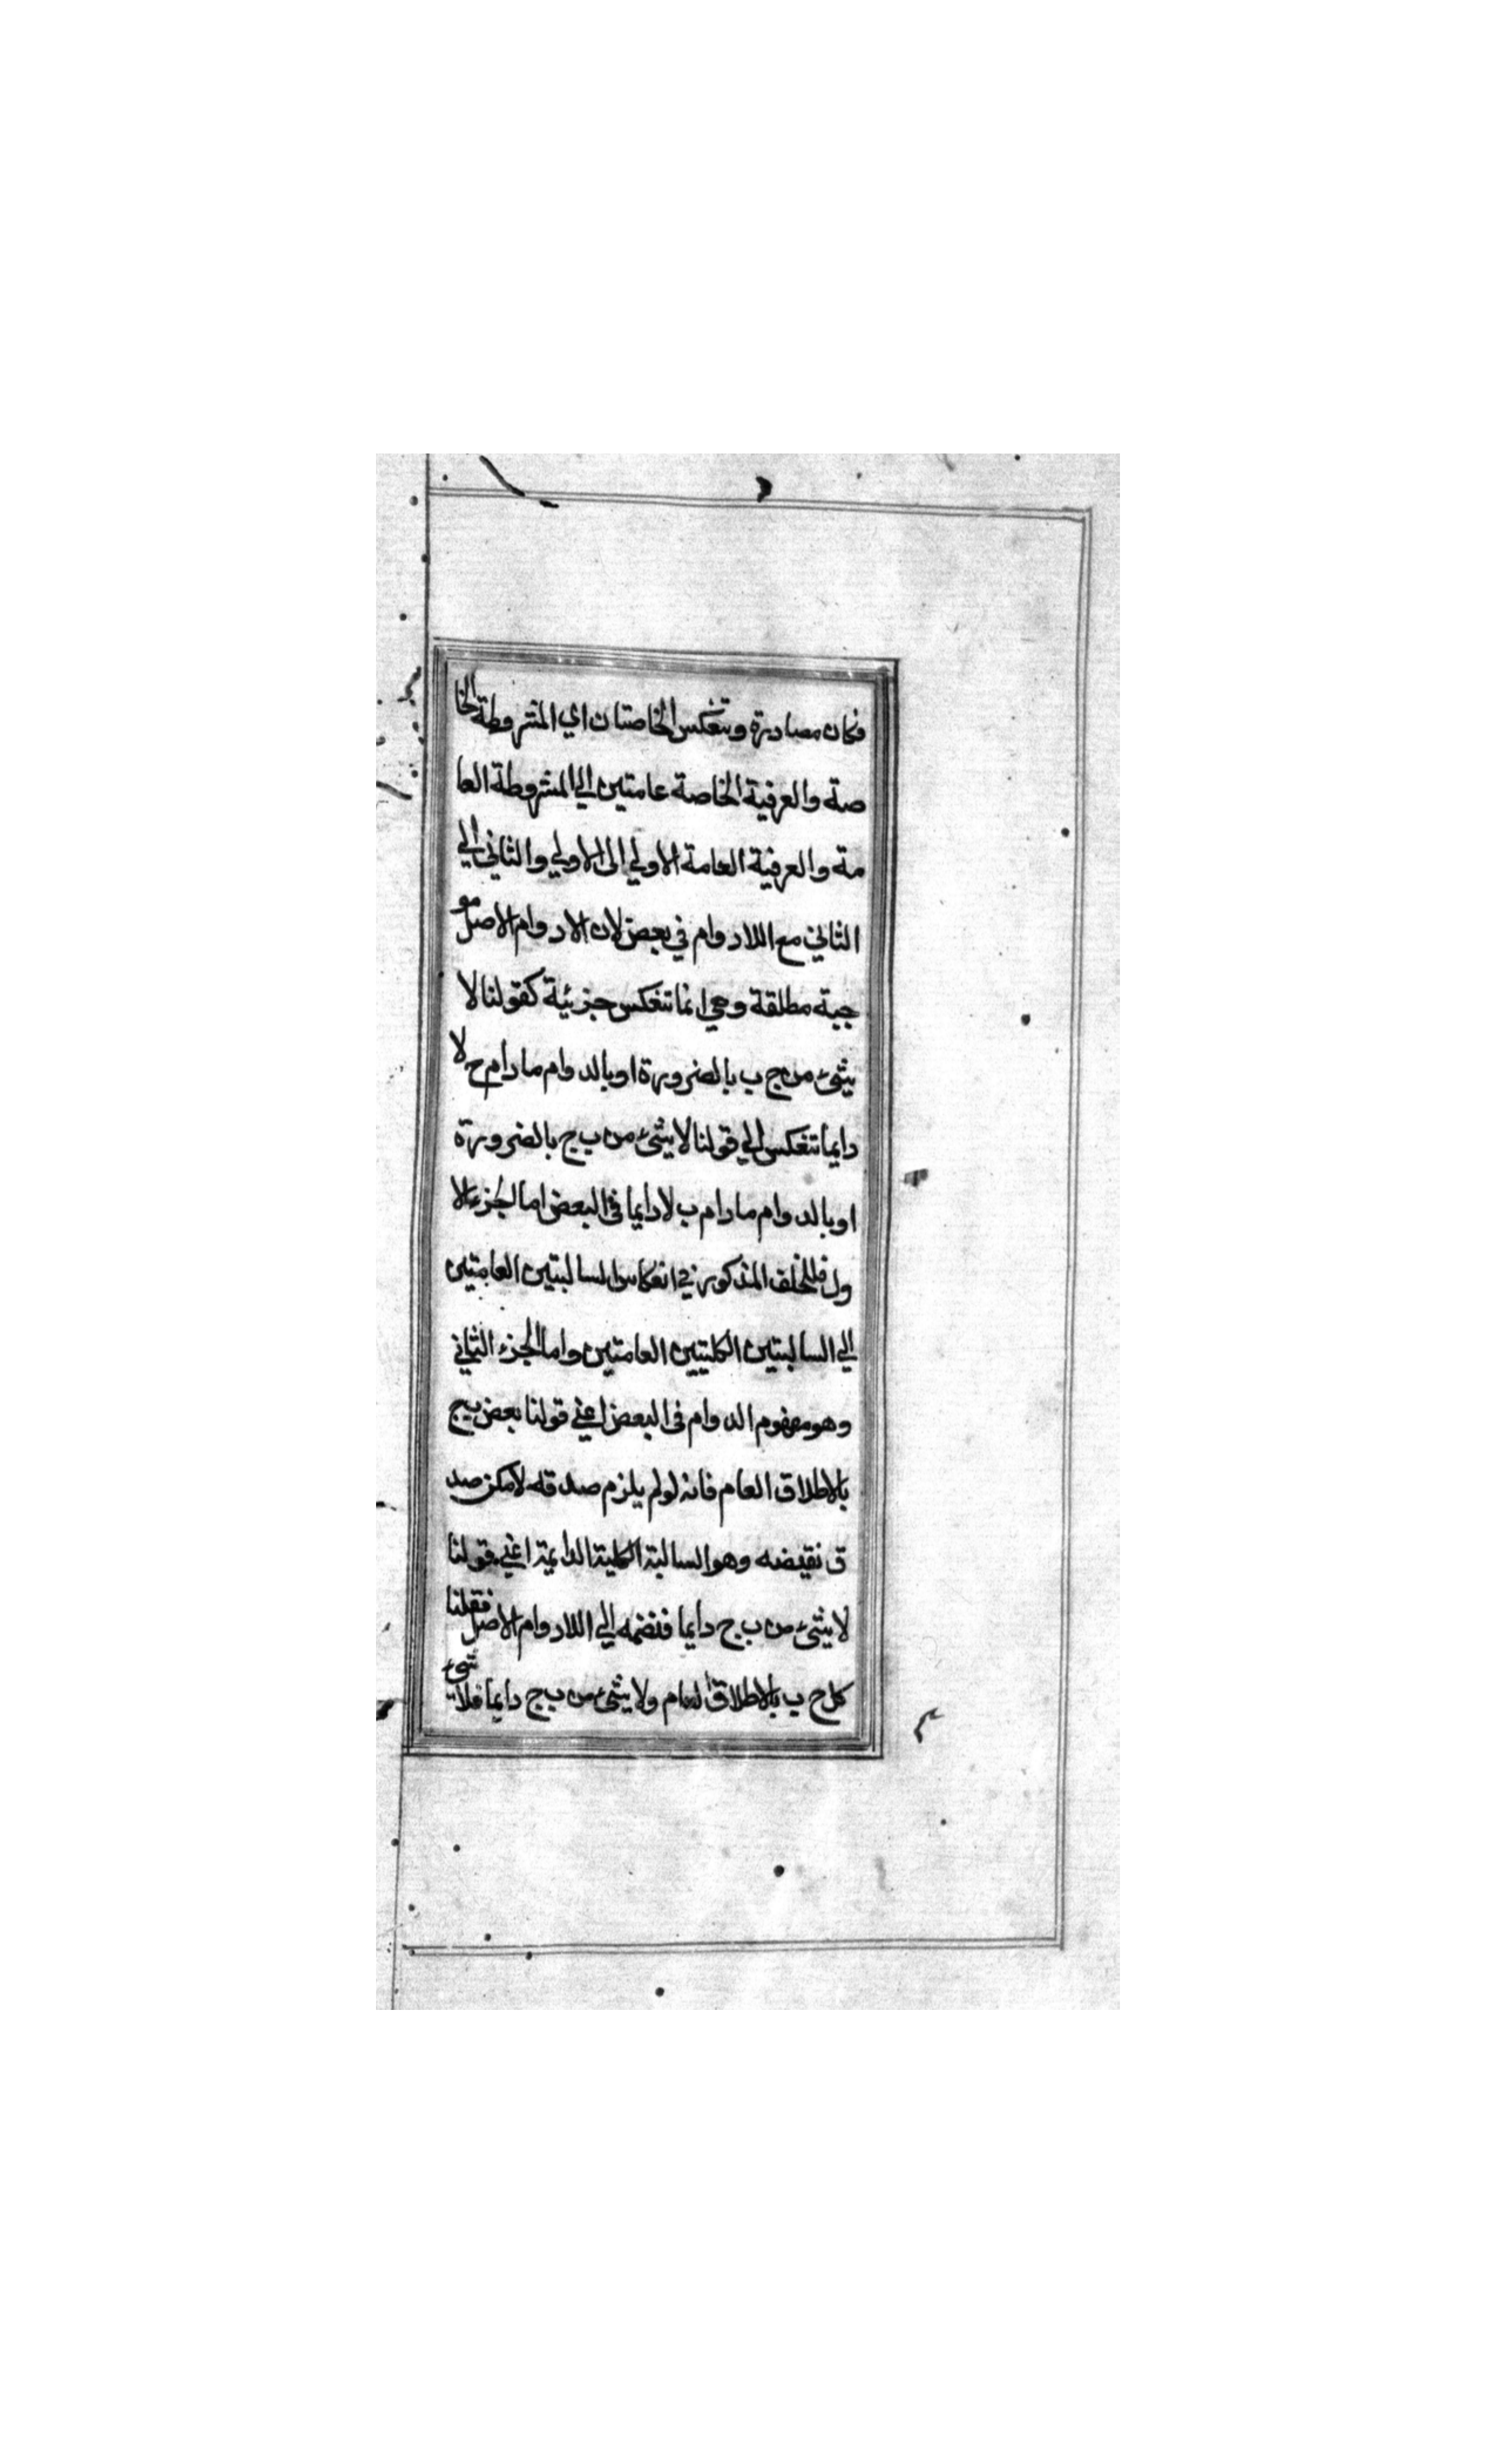 فكان مصادرة وتنعكس الخاصتان اي المشروطة الخا
صة والعرفية الخاصة عامتين الي المشروطة العا
مة والعرفية العامة الاولي الى الاولي والثاني الي
الثاني مع اللادوام في بعض لان الادوام الاصل مو
جبة مطلقة وهي انما تنعكس جزئية كقولنا لا
شئ من ج ب بالضرورة او بالدوام مادام ج لا
دايما تنعكس الي قولنا لا شئ من ب ج بالضرورة
او بالدوام مادام ب لا دايما في البعض اما الجزء الا
ول فللخلف المذكور في انعكاس السالبتين العامتين
الي السالبتين الكليتين العامتين واما الجزء الثاني
وهو مفهوم الدوام في البعض اعني قولنا بعض ب ج
بالاطلاق العام فانه لو لم يلزم صدقه لامكن صد
ق نقيضه وهو السالبة الكلية الدايمة اعني قولنا
لا شئ من ب ج دايما فنضمه الي اللادوام الاصل فقلنا
كل ج ب بالاطلاق العام ولا شئ من ب ج دايما فلا شئ